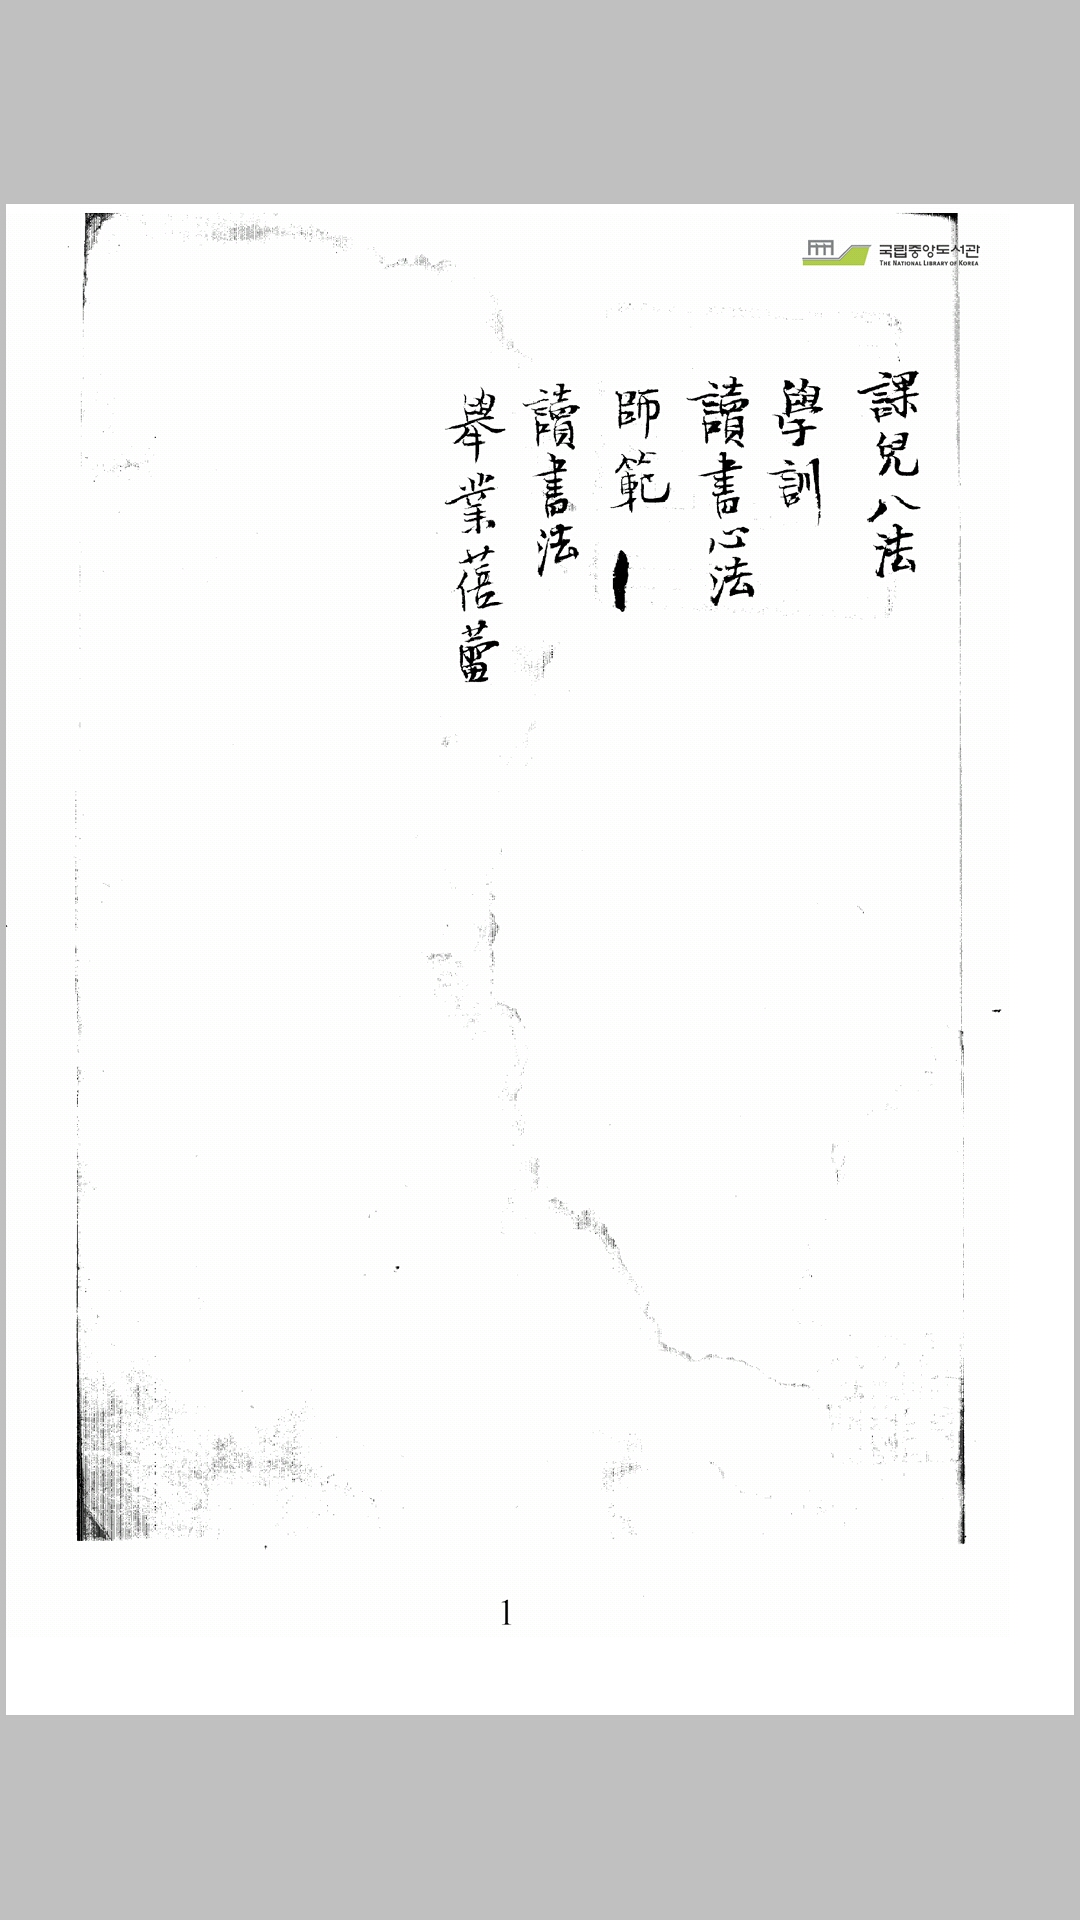 국립중앙도서관
THE NATIONAL LIBRARY OF KOREA
課兒八法
學訓
讀書心法
師範
讀書法
舉業蓓蕾
1